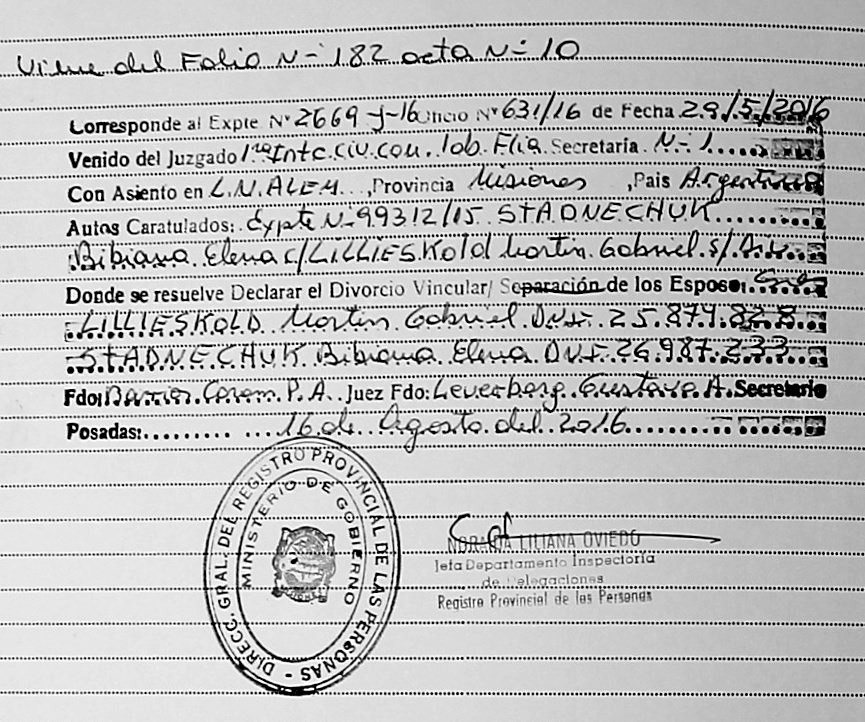 Viene del Folio N- 182 acta N- 10
Corresponde al Expte Nº 2669-J-16 Oficio Nº 631/16 de Fecha 29/5/2016
Venido del Juzgado 1ra Intc. civ. com. lab. Flia. Secretaría N-1
Con Asiento en L.N. ALEM , Provincia Misiones , Pais Argentina
Autos Caratulados: Expte N- 99312/15 STADNECHUK
Bibiana Elena c/LILLIESKOLD Martin Gabriel s/
Donde se resuelve Declarar el Divorcio Vincular/ Separación de los Esposos:
LILLIESKOLD Martin Gabriel DNI- 25.874.828
STADNECHUK Bibiana Elena DNI- 26.987.233
Fdo: P.A. Juez Fdo: Leverberg Gustavo A. Secretario
Posadas: 16 de Agosto del 2016
DIRECC. GRAL. DEL REGISTRO PROVINCIAL DE LAS PERSONAS -
MINISTERIO DE GOBIERNO
LILIANA OVIEDO
Jefa Departamento Inspectoría
de Delegaciones
Registro Provincial de las Personas